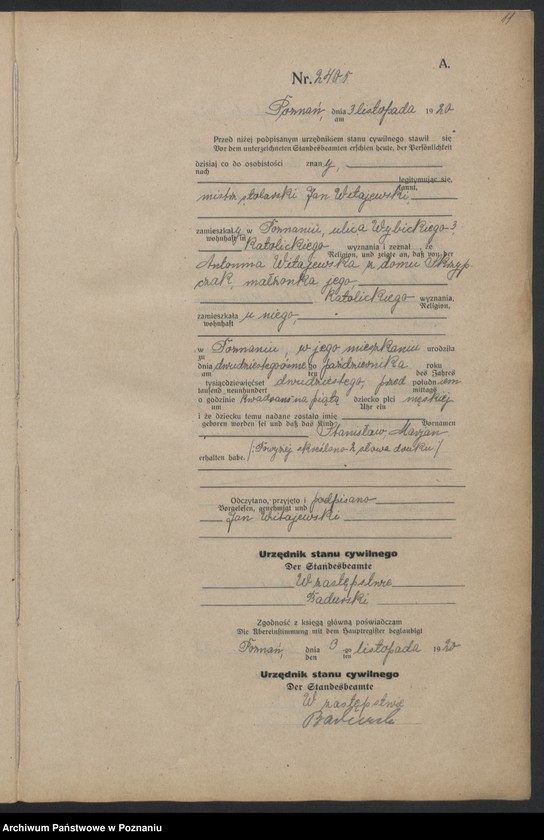 11
A.
Nr. 2405
Poznań, dnia 3 listopada 1920
am
Przed niżej podpisanym urzędnikiem stanu cywilnego stawił się
Vor dem unterzeichneten Standesbeamten erschien heute, der Persönlichkeit
dzisiaj co do osobistości znany,
nach
legitymując się,
kannt,
mistrz stolarski Jan Witajewski,
zamieszkały w Poznaniu, ulica Wybickiego 3,
wohnhaft in
katolickiego wyznania i zeznał, że
Religion, und zeigte an, daß von der
Antonina Witajewska z domu Skrzyp-
czak, małżonka jego,
katolickiego wyznania,
Religion,
zamieszkała u niego,
wohnhaft
w Poznaniu, w jego mieszkaniu urodziła
zu
dnia dwudziestegoósmego października roku
am ten des Jahres
tysiącdziewięćset dwudziestego, przed południem
tausend neunhundert mittags
o godzinie kwadrans na piątą dziecko płci męskiej
um Uhr ein
i że dziecku temu nadane zostało imię
geboren worden sei und daß das Kind Vornamen
Stanisław Marjan.
erhalten habe. /: Powyżej skreślono 2 słowa druku/
Odczytano, przyjęto i podpisano
Vorgelesen, genehmigt und
Jan Witajewski
Urzędnik stanu cywilnego
Der Standesbeamte
W zastępstwie
Zgodność z księgą główną poświadczam
Die Übereinstimmung mit dem Hauptregister beglaubigt
Poznań, dnia 3 go listopada 1920
den ten
Urzędnik stanu cywilnego
Der Standesbeamte
W zastępstwie
Archiwum Państwowe w Poznaniu